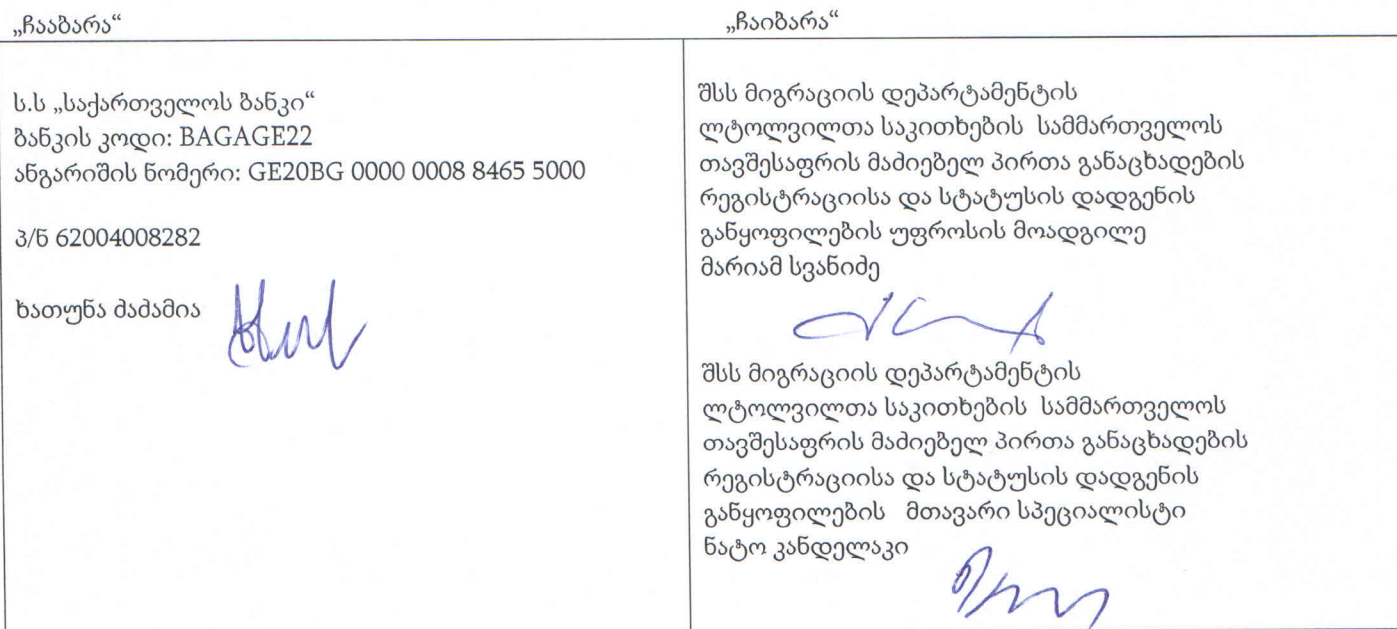 „ჩააბარა“
ს.ს „საქართველოს ბანკი“
ბანკის კოდი: BAGAGE22
ანგარიშის ნომერი: GE20BG 0000 0008 8465 5000
პ/ნ 62004008282
ხათუნა ძაძამია
„ჩაიბარა“
შსს მიგრაციის დეპარტამენტის
ლტოლვილთა საკითხების სამმართველოს
თავშესაფრის მაძიებელ პირთა განაცხადების
რეგისტრაციისა და სტატუსის დადგენის
განყოფილების უფროსის მოადგილე
მარიამ სვანიძე
შსს მიგრაციის დეპარტამენტის
ლტოლვილთა საკითხების სამმართველოს
თავშესაფრის მაძიებელ პირთა განაცხადების
რეგისტრაციისა და სტატუსის დადგენის
განყოფილების მთავარი სპეციალისტი
ნატო კანდელაკი